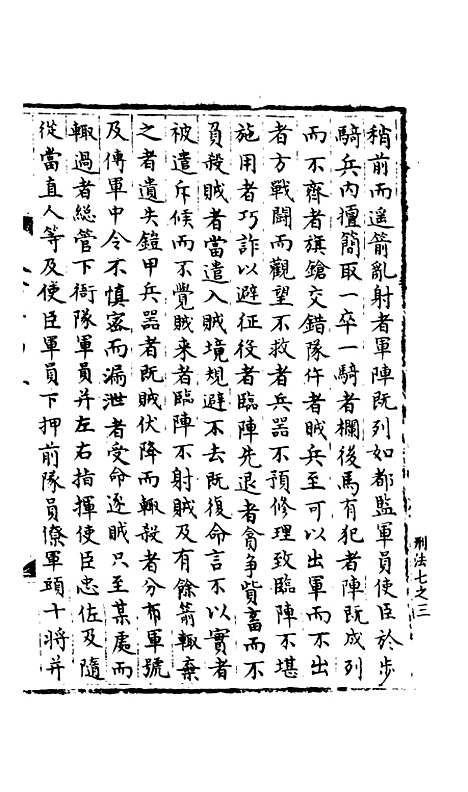 稍前而遥箭亂射者軍陣既列如都監軍員使臣於步
騎兵内擅簡取一卒一騎者欄後馬有犯者陣既成列
而不齊者旗鎗交錯隊仵者賊兵至可以出軍而不出
者方戰鬪而觀望不救者兵器不預修理致臨陣不堪
施用者巧詐以避征役者臨陣先退者貪爭貲畜而不
負殺賊者當遣入賊境規避不去既復命言不以實者
被遣斥候而不覺賊来者臨陣不射賊及有餘箭輙棄
之者遺失鎧甲兵器者既賊伏降而輙殺者分布軍號
及傳軍中令不慎密而漏泄者受命逐賊只至某處而
輙過者總管下衙隊軍員并左右指揮使臣忠佐及隨
從當直人等及使臣軍員下押前隊員僚軍頭十將并
刑法七之三